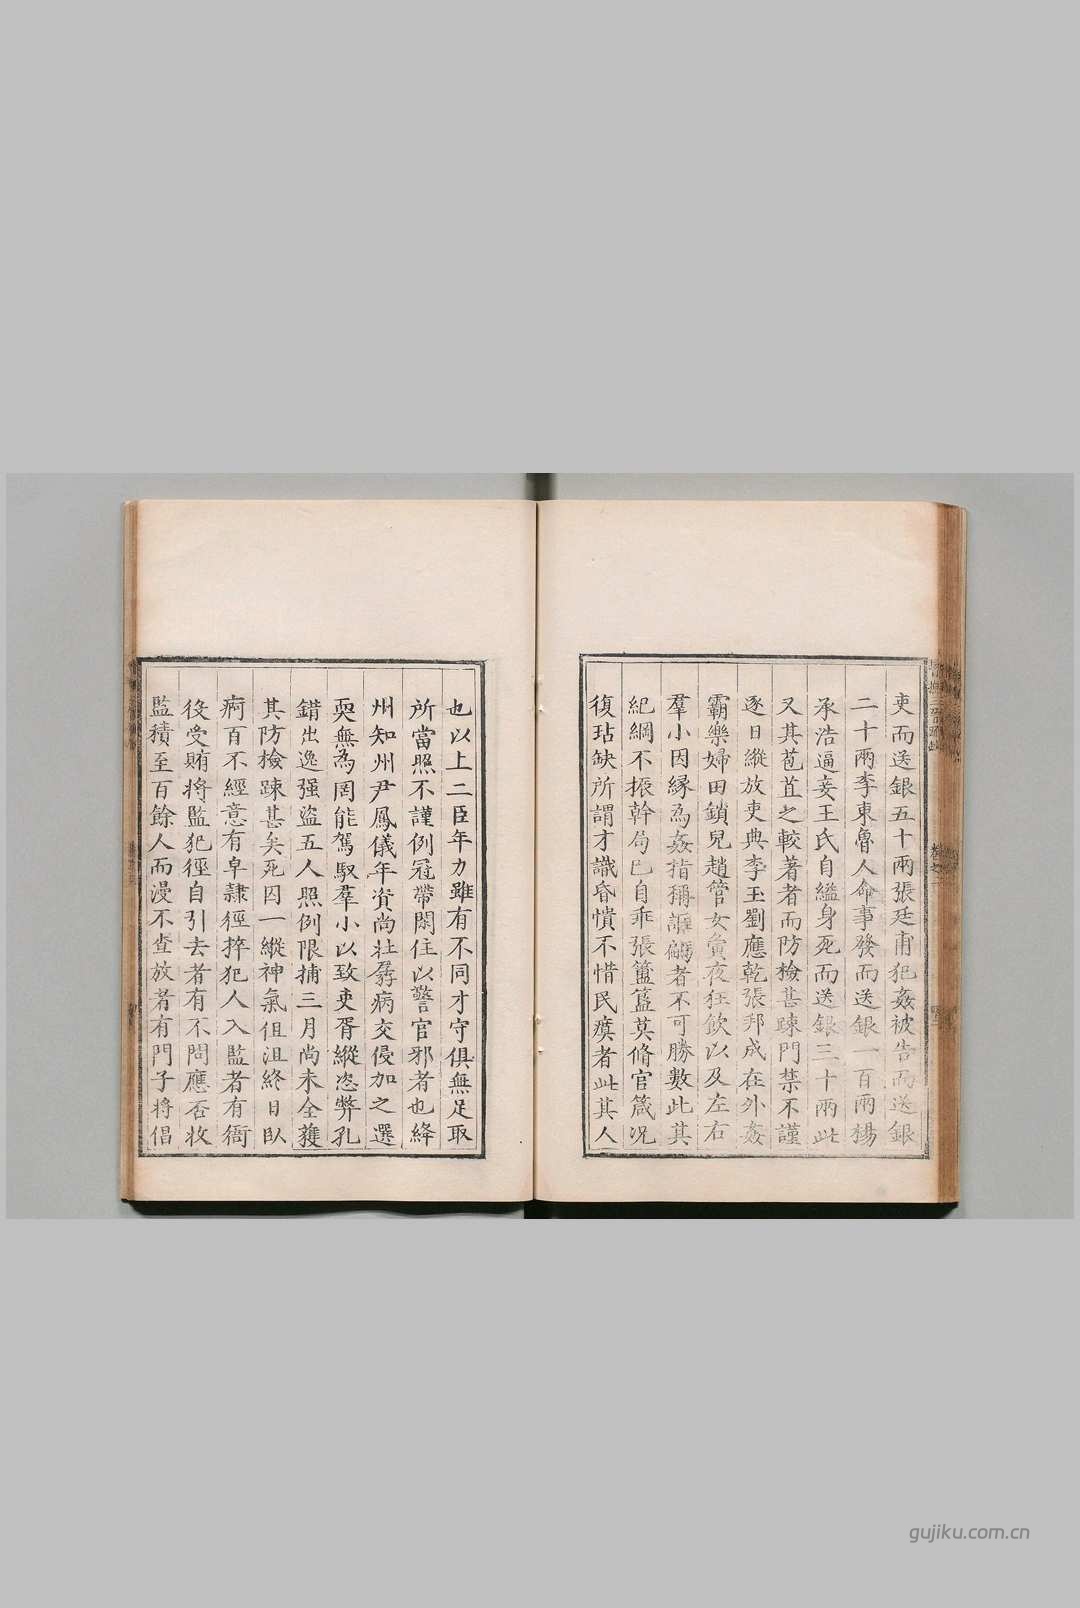 吏而送銀五十兩張廷甫犯姦被告而送銀
二十兩李東魯人命事發而送銀一百兩楊
承浩逼妾王氏自縊身死而送銀三十兩此
又其苞苴之較著者而防檢甚踈門禁不謹
逐日縱放吏典李玉劉應乾張邦成在外姦
霸樂婦田鎖兒趙管女寅夜狂飲以及左右
羣小因縁為姦指稱誆騙者不可勝數此其
紀綱不振幹局已自乖張簠簋莫脩官箴况
復玷缺所謂才識昏憒不惜民瘼者此其人
也以上二臣年力雖有不同才守俱無足取
所當照不謹例冠帶閑住以警官邪者也絳
州知州尹鳳儀年資尚壯孱病交侵加之選
耎無為罔能駕馭羣小以致吏胥縱恣弊孔
錯出逸强盗五人照例限捕三月尚未全獲
其防檢踈甚矣死囚一縱神氣伹沮終日臥
痾百不經意有皁隸徑捽犯人入監者有衙
役受賄將監犯徑自引去者有不問應否收
監積至百餘人而漫不查放者有門子將倡
卷之三
gujiku.com.cn